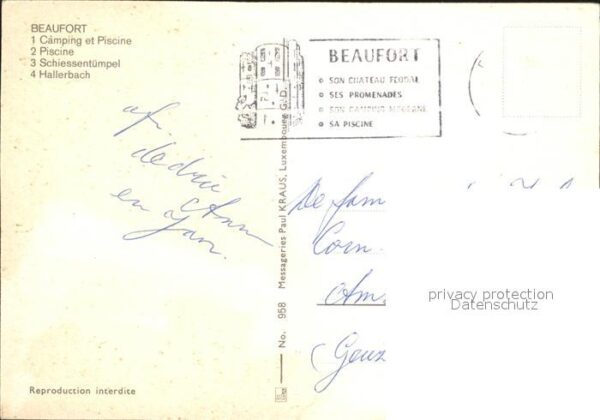 BEAUFORT
1 Cämping et Piscine
2 Piscine
3 Schiessentümpel
4 Hallerbach
BEAUFORT
SON CHATEAU FEODAL
SES PROMENADES
SON CAMPING MODERNE
SA PISCINE
afz.
en Jan.
No. 958 Messageries Paul KRAUS, Luxembourg G. D.
De fam
Corn.
Am.
privacy protection
Datenschutz
Reproduction interdite